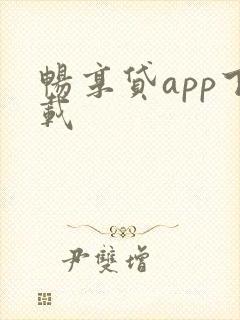 暢享貸app下
載
尹雙增